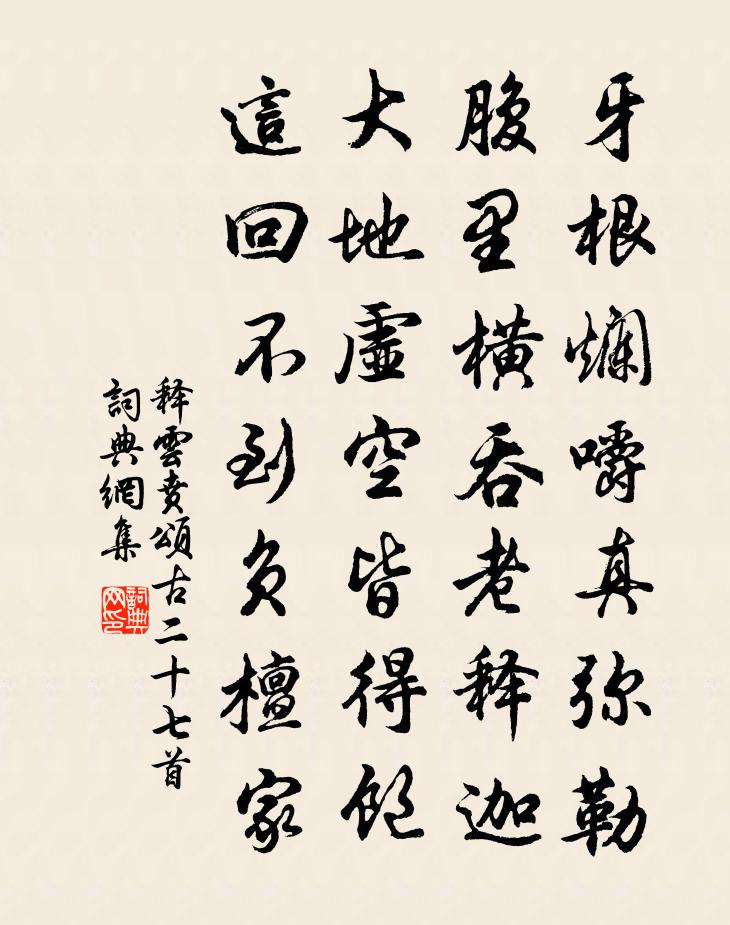 牙根爛嚼真弥勒
腹里横吞老释迦
大地虛空皆得飽
這回不到负檀家
释雲賁頌古二十七首
詞典網集
詞典
网印